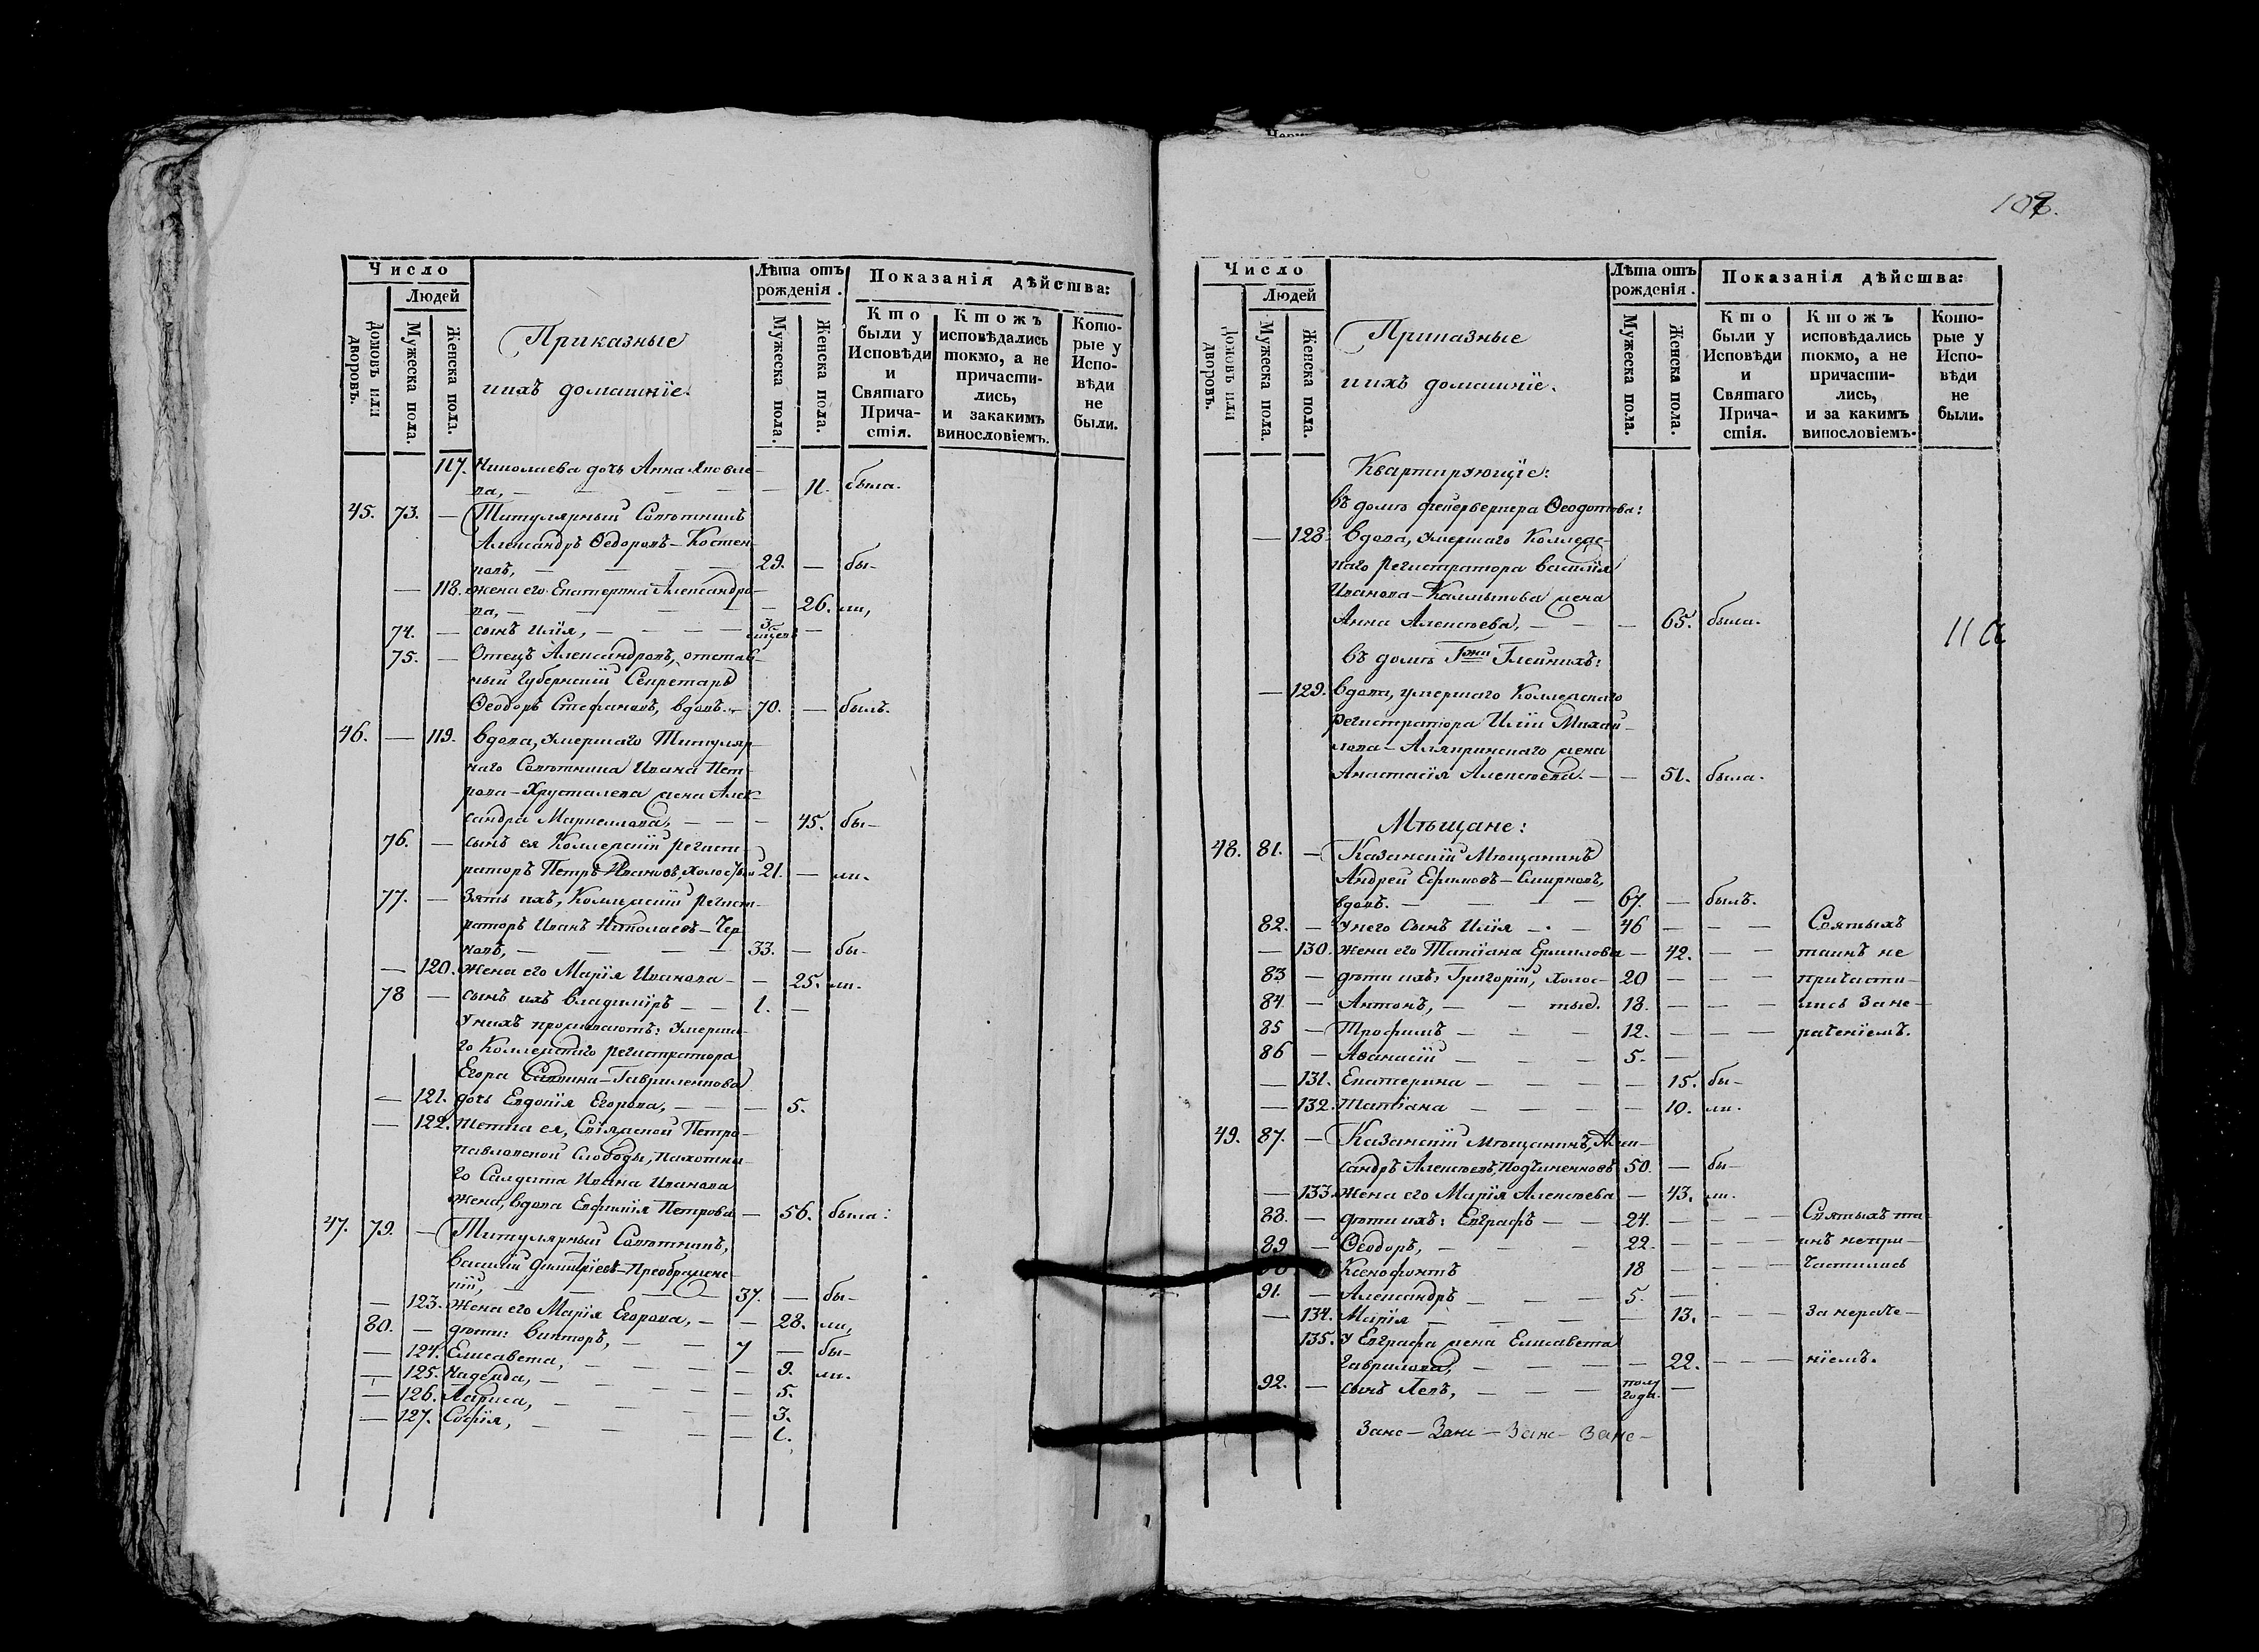 108.
Число
Людей
Домовъ или дворовъ.
Мужеска пола.
Женска пола.
Приказные
ихъ домашніе.
Лѣта отъ рожденія.
Мужеска пола.
Женска пола.
Показанія дѣйства:
Кто были у Исповѣди и Святаго Причастія.
Ктожъ исповѣдались токмо, а не причастились, и закакимъ винословіемъ.
Которые у Исповѣди не были.
117. Николаева дочь Анна Яковле-
ва, — — — — — 11. была.
45. 73. — Титулярный Совѣтникъ
Александръ Ѳедоровъ — Костен-
ковъ, — — — 29. — бы-
— 118. жена его Екатерина Александро-
ва, — — — — 26. ли,
74. — сынъ Илія, — — — —
75. — Отецъ Александровъ, отстав-
ный Губернскій Секретарь
Ѳеодоръ Стефановъ, вдовъ. — 70. — былъ.
46. — 119. вдова, умершаго Титуляр-
наго Совѣтника Ивана Пет-
рова — Хрусталева жена Алек-
сандра Маркеллова, — — — 45. бы-
76. — сынъ ея Коллежскій регист-
раторъ Петръ Ивановъ, холостый 21. — ли.
77. — Зять ихъ, Коллежскій регист-
раторъ Иванъ Николаевъ — Чер-
новъ, — — — 33. — бы-
— 120. жена его Марія Иванова — — 25. ли.
78 — сынъ ихъ владиміръ — — 1. —
У нихъ проживаютъ: умерша-
го Коллежскаго регистратора
Егора Саввина — Гавриленкова
— 121. дочь Евдокія Егорова, — — — 5.
— 122. тетка ея, Свіяжской Петро-
павловской слободы, пахотна-
го Солдата Ивана Иванова
жена, вдова Евфимія Петрова — 56. была:
47. 79. — Титулярный Совѣтникъ,
Василій Димитріевъ — Преображенс-
кій, — — — 37. — бы-
— 123. жена его Марія Егорова, — — 28. ли,
80. — дѣти: викторъ, — — 7 — бы-
— 124. Елисавета, — — — — 9. ли.
— 125. Надежда, — — — — 5.
— 126. Лариса, — — — — 3.
— 127. Софія, — — — — 1.
Число
Людей
Домовъ или дворовъ.
Мужеска пола.
Женска пола.
Приказные
ихъ домашніе.
Лѣта отъ рожденія.
Мужеска пола.
Женска пола.
Показанія дѣйства:
Кто были у Исповѣди и Святаго Причастія.
Ктожъ исповѣдались токмо, а не причастились, и за какимъ винословіемъ.
Которые у Исповѣди не были.
Квартирующіе:
въ домѣ фейерверкера Ѳеодотова:
— 128. вдова, умершаго Коллежс-
каго регистратора василія
Иванова — Калмыкова жена
Анна Алексѣева, — — — 65. была.
11 а
въ домѣ Гжи Глейнихъ:
— 129. вдова, умершаго Коллежскаго
регистратора Иліи Михай-
лова — Алякринскаго жена
Анастасія Алексѣева. — — 51. была.
Мѣщане:
48. 81. — Казанскій Мѣщанинъ
Андрей Ефимовъ — Смирновъ,
вдовъ. — — — 67. — былъ.
82. — У него сынъ Илія — — 46 — — — Святыхъ
— 130. жена его Татіана Ермилова — 42. — — таинъ не
83 — дѣти ихъ: Григорій, холос- 20 — — — причасти-
84. — Антонъ, — — тые. 18. — — — лись за не-
85 — Трофимъ — — — 12. — — — раченіемъ.
86 — Аѳанасій — — — 5. —
— 131. Екатерина — — — — 15. бы-
— 132. Татіана — — — — 10. ли.
49. 87. — Казанскій Мѣщанинъ, Алек-
сандръ Алексѣевъ, Подчиненновъ 50. — бы-
— 133. жена его Марія Алексѣева — 43. ли.
88. — дѣти ихъ: Евграфъ — — 24. — — — Святыхъ та-
89 — Ѳеодоръ, — — 22. — — — инъ непри-
Ксенофонтъ 18 — — — частились
91. — Александръ — — — 5. —
— 134. Марія — — — — 13. — — За нераче-
135. У Евграфа жена Елисавета
Гаврилова, — — — — 22. — — — ніемъ.
92. — сынъ Левъ, — — — полгода. —